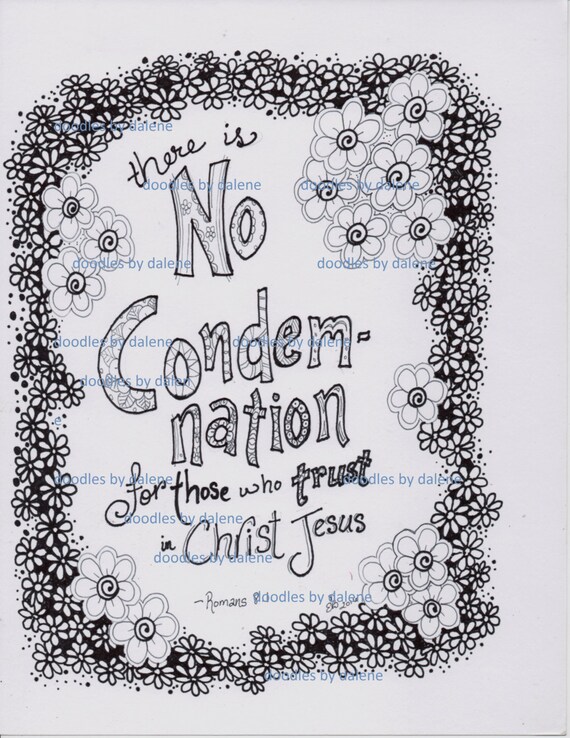 doodles by dalene
there is
doodles by dalene doodles by dalene
No
doodles by dalene doodles by dalene
Condem-
doodles by dalene doodles by dalene
doodles by dalene
nation
doodles by dalene doodles by dalene
for those who trust
doodles by dalene
in Christ Jesus
doodles by dalene
- Romans 8:1
doodles by dalene
doodles by dalene